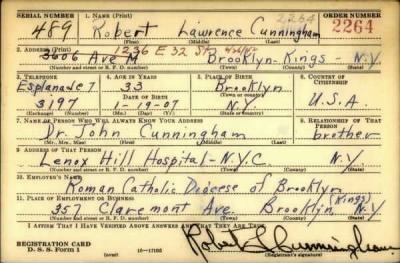 SERIAL NUMBER 1. NAME (Print) 2264 ORDER NUMBER
489 Robert Lawrence Cunningham 2264
(First) (Middle) (Last)
2. ADDRESS (Print) 1236 E 32 St.
3606 Ave M Brooklyn-Kings - N.Y.
(Number and street or R. F. D. number) (Town) (County) (State)
3. TELEPHONE 4. AGE IN YEARS 5. PLACE OF BIRTH 6. COUNTRY OF CITIZENSHIP
Esplanade 7 33 Brooklyn
DATE OF BIRTH (Town or county)
3197 1-19-07 N.Y. U.S.A.
(Exchange) (Number) (Mo.) (Day) (Yr.) (State or country)
7. NAME OF PERSON WHO WILL ALWAYS KNOW YOUR ADDRESS 8. RELATIONSHIP OF THAT PERSON
Dr. John Cunningham brother
(Mr., Mrs., Miss) (First) (Middle) (Last)
9. ADDRESS OF THAT PERSON
Lenox Hill Hospital-N.Y.C. N.Y
(Number and street or R. F. D. number) (Town) (County) (State)
10. EMPLOYER'S NAME
Roman Catholic Diocese of Brooklyn
11. PLACE OF EMPLOYMENT OR BUSINESS
357 Claremont Ave. Brooklyn (Kings) N.Y.
(Number and street or R. F. D. number) (Town) (County) (State)
I AFFIRM THAT I HAVE VERIFIED ABOVE ANSWERS AND THAT THEY ARE TRUE.
REGISTRATION CARD
D. S. S. Form 1 (over) 16-17105 Robert L Cunningham
(Registrant's signature)